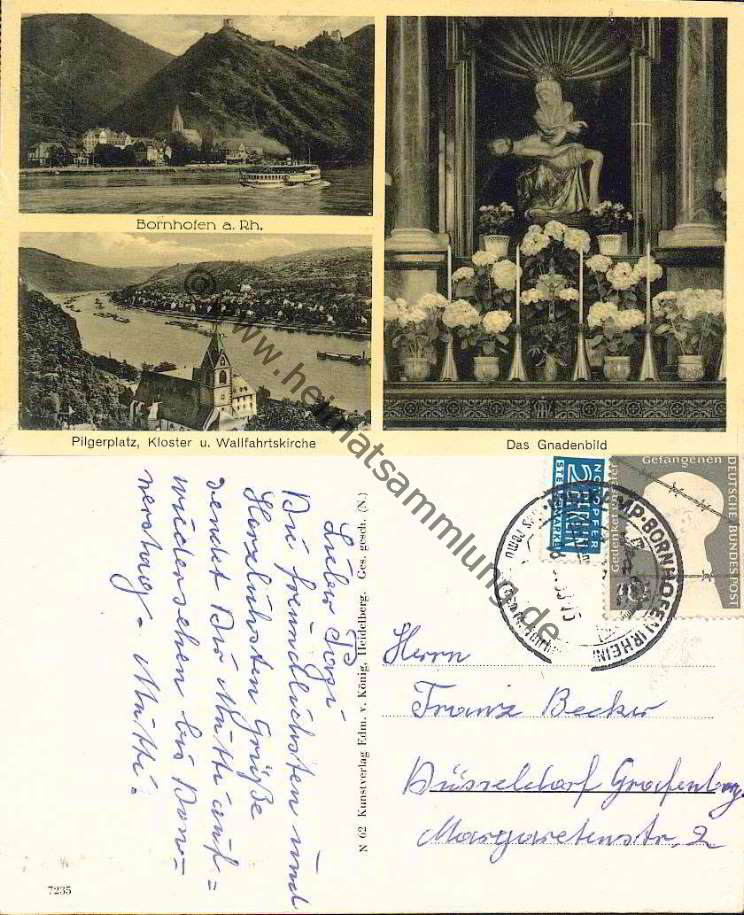 Bornhofen a. Rh.
Pilgerplatz, Kloster u. Wallfahrtskirche
Das Gnadenbild
© www.heimatsammlung.de
Lieber Papi
Die freundlichsten und
Herzlichsten Grüße
sendet Dir Mutti auf =
wiedersehen bis Don =
nerstag. Mutti.
N 62 Kunstverlag Edm. v. König, Heidelberg. Ges. gesch. (N.)
7235
NOTOPFER
2 BERLIN
STEUERMARKE
Gedenket unserer
Gefangenen
DEUTSCHE BUNDESPOST
KAMP-BORNHOFEN (RHEIN)
Herrn
Franz Becker
Düsseldorf Grafenberg
Margaretenstr. 2